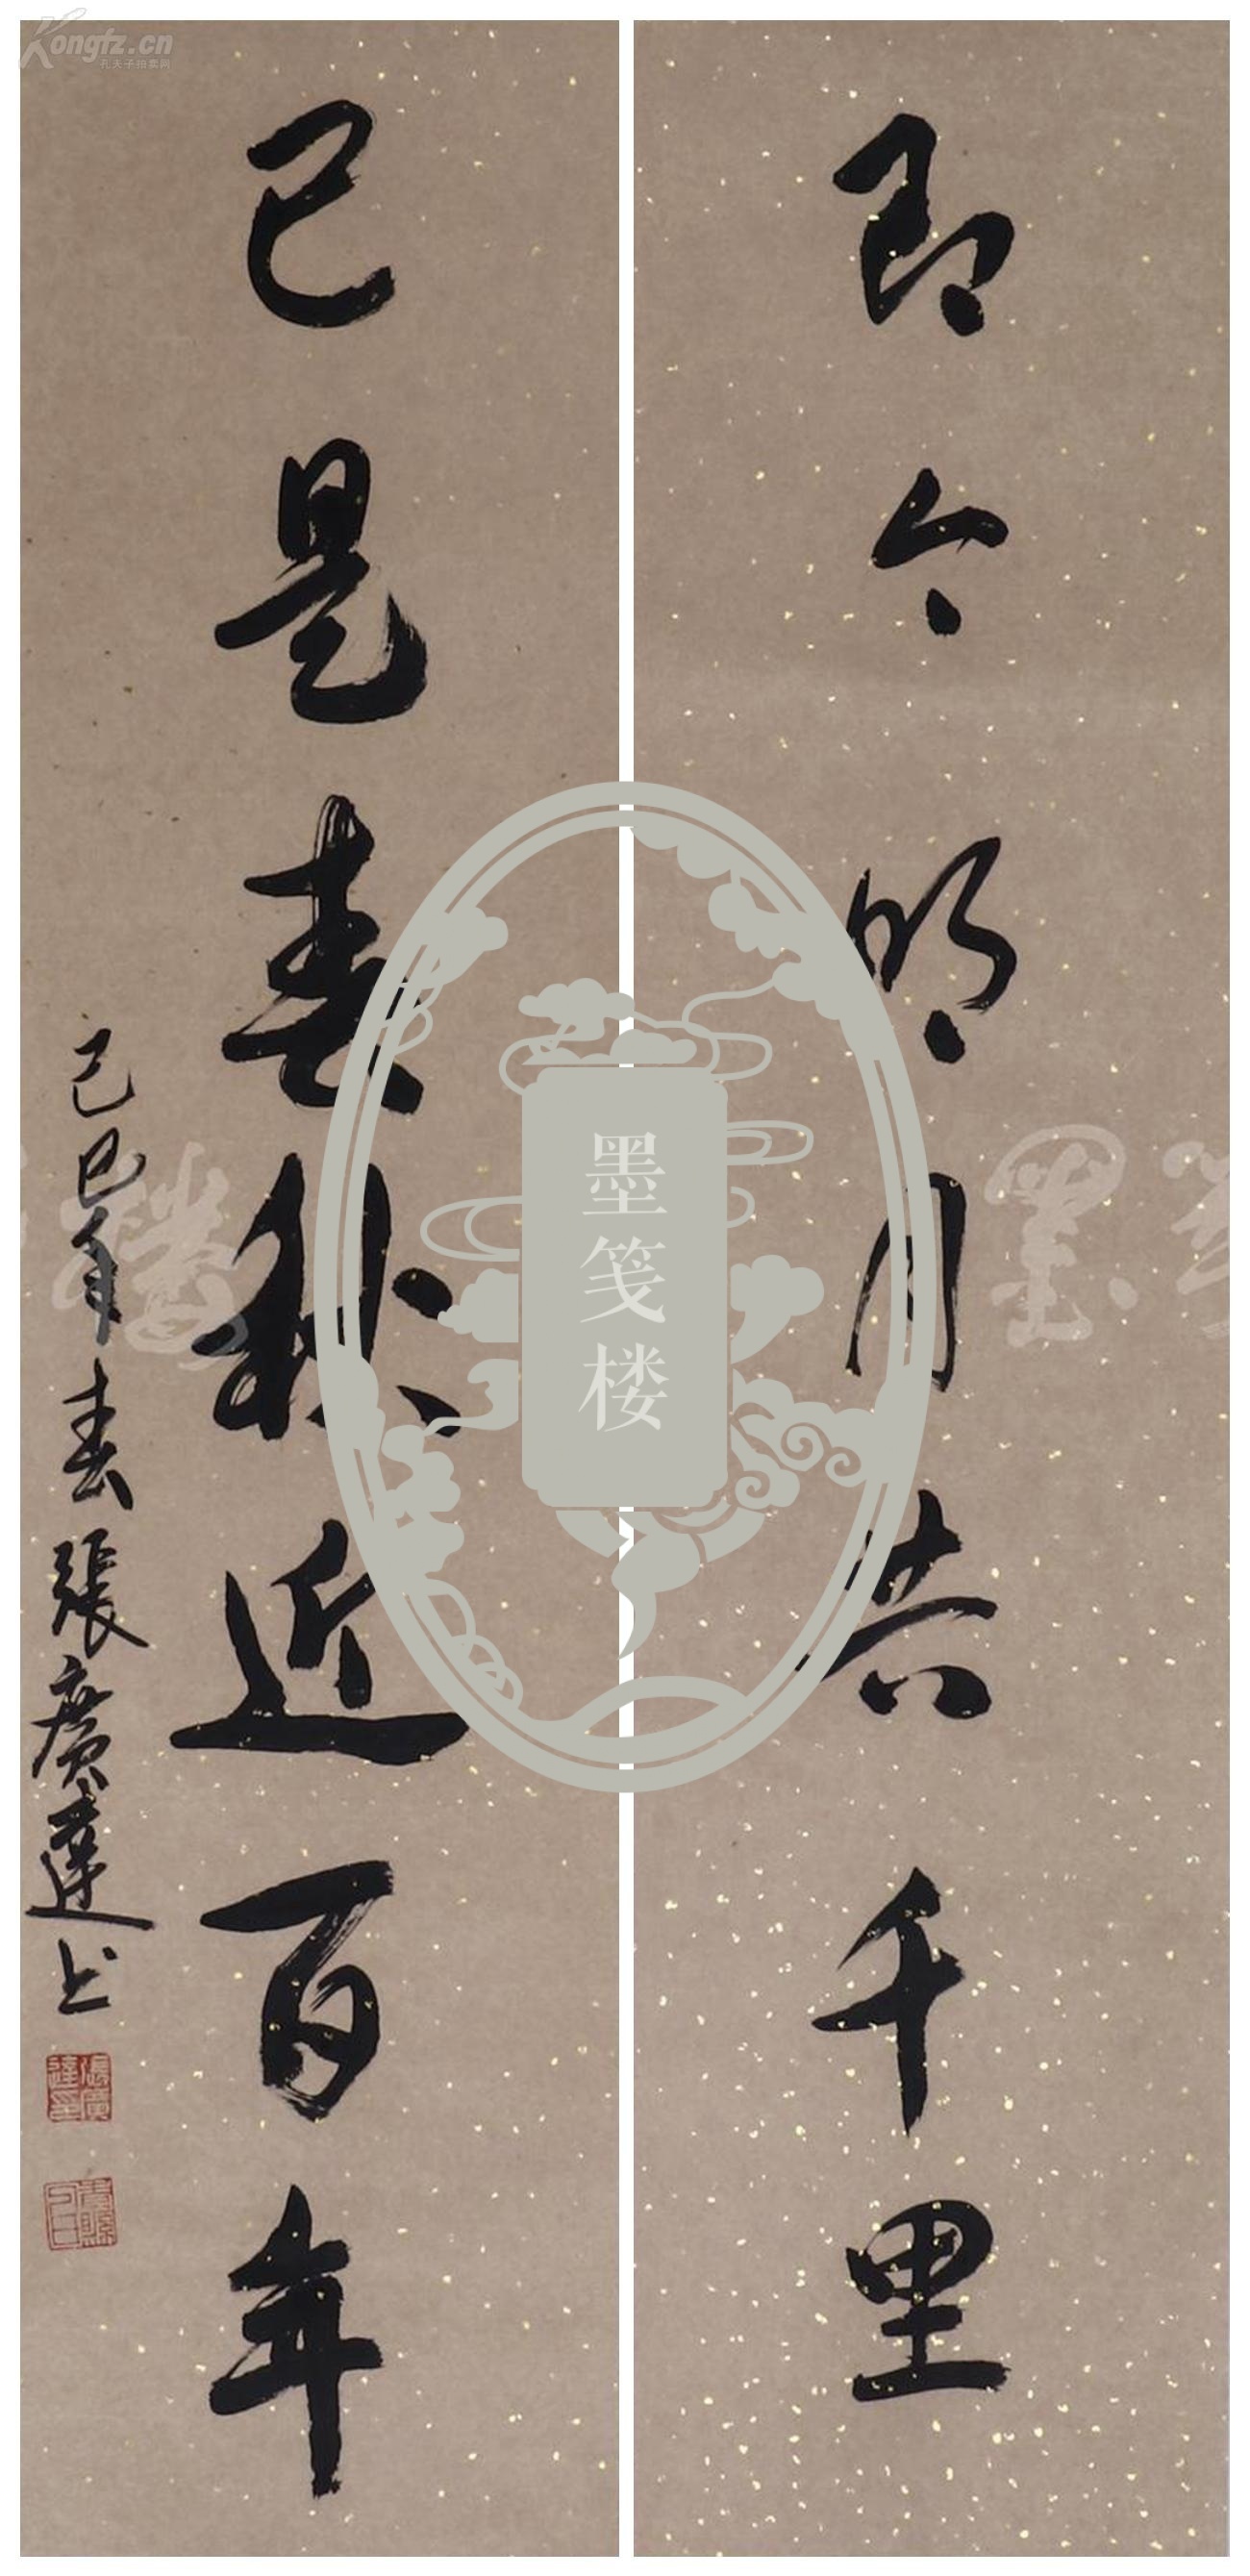 即今明月共千里
已是春秋近百年
己巳年春張廣達上
張廣達印
墨笺楼
Kongfz.cn
孔夫子拍卖网